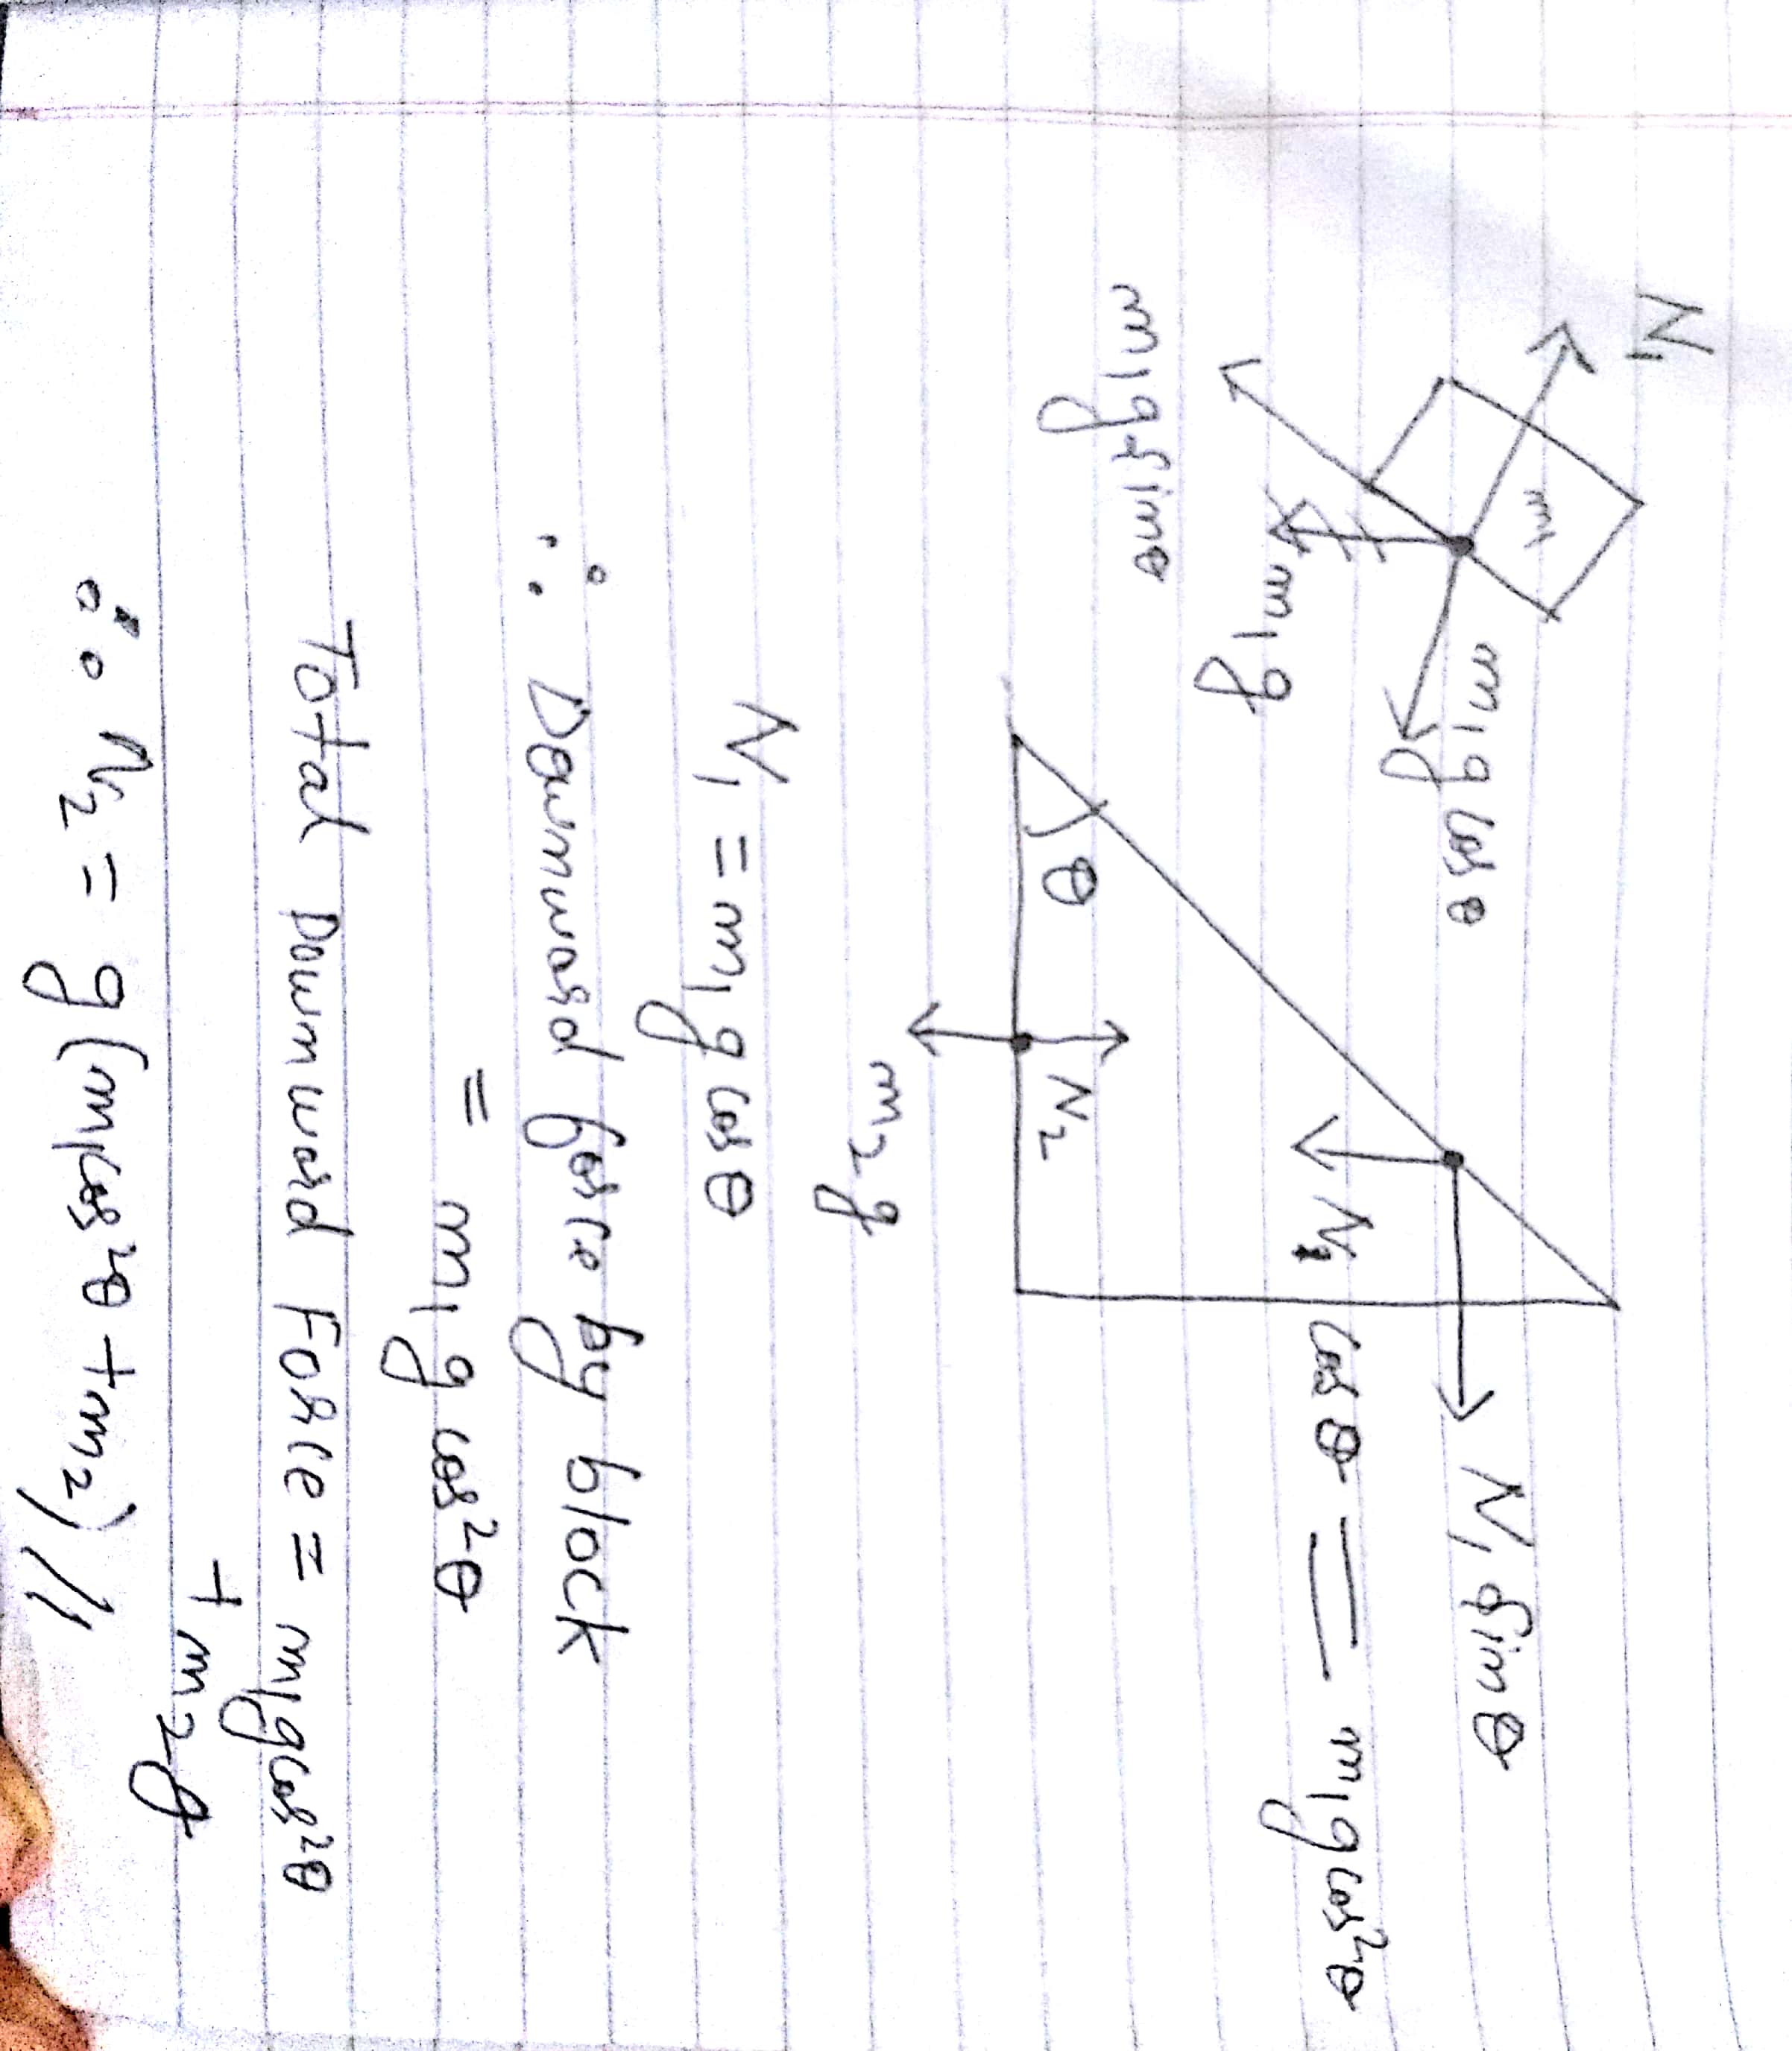 N₁
m₁
m₁g cosθ
m₁g
m₁gsinθ
N₁ sinθ
N₁ cosθ = m₁gcos²θ
θ
N₂
m₂g
N₁ = m₁g cosθ
∴ Downward force by block
= m₁g cos²θ
Total Downward Force = m₁gcos²θ
+ m₂g
∴ N₂ = g(m₁cos²θ + m₂) //